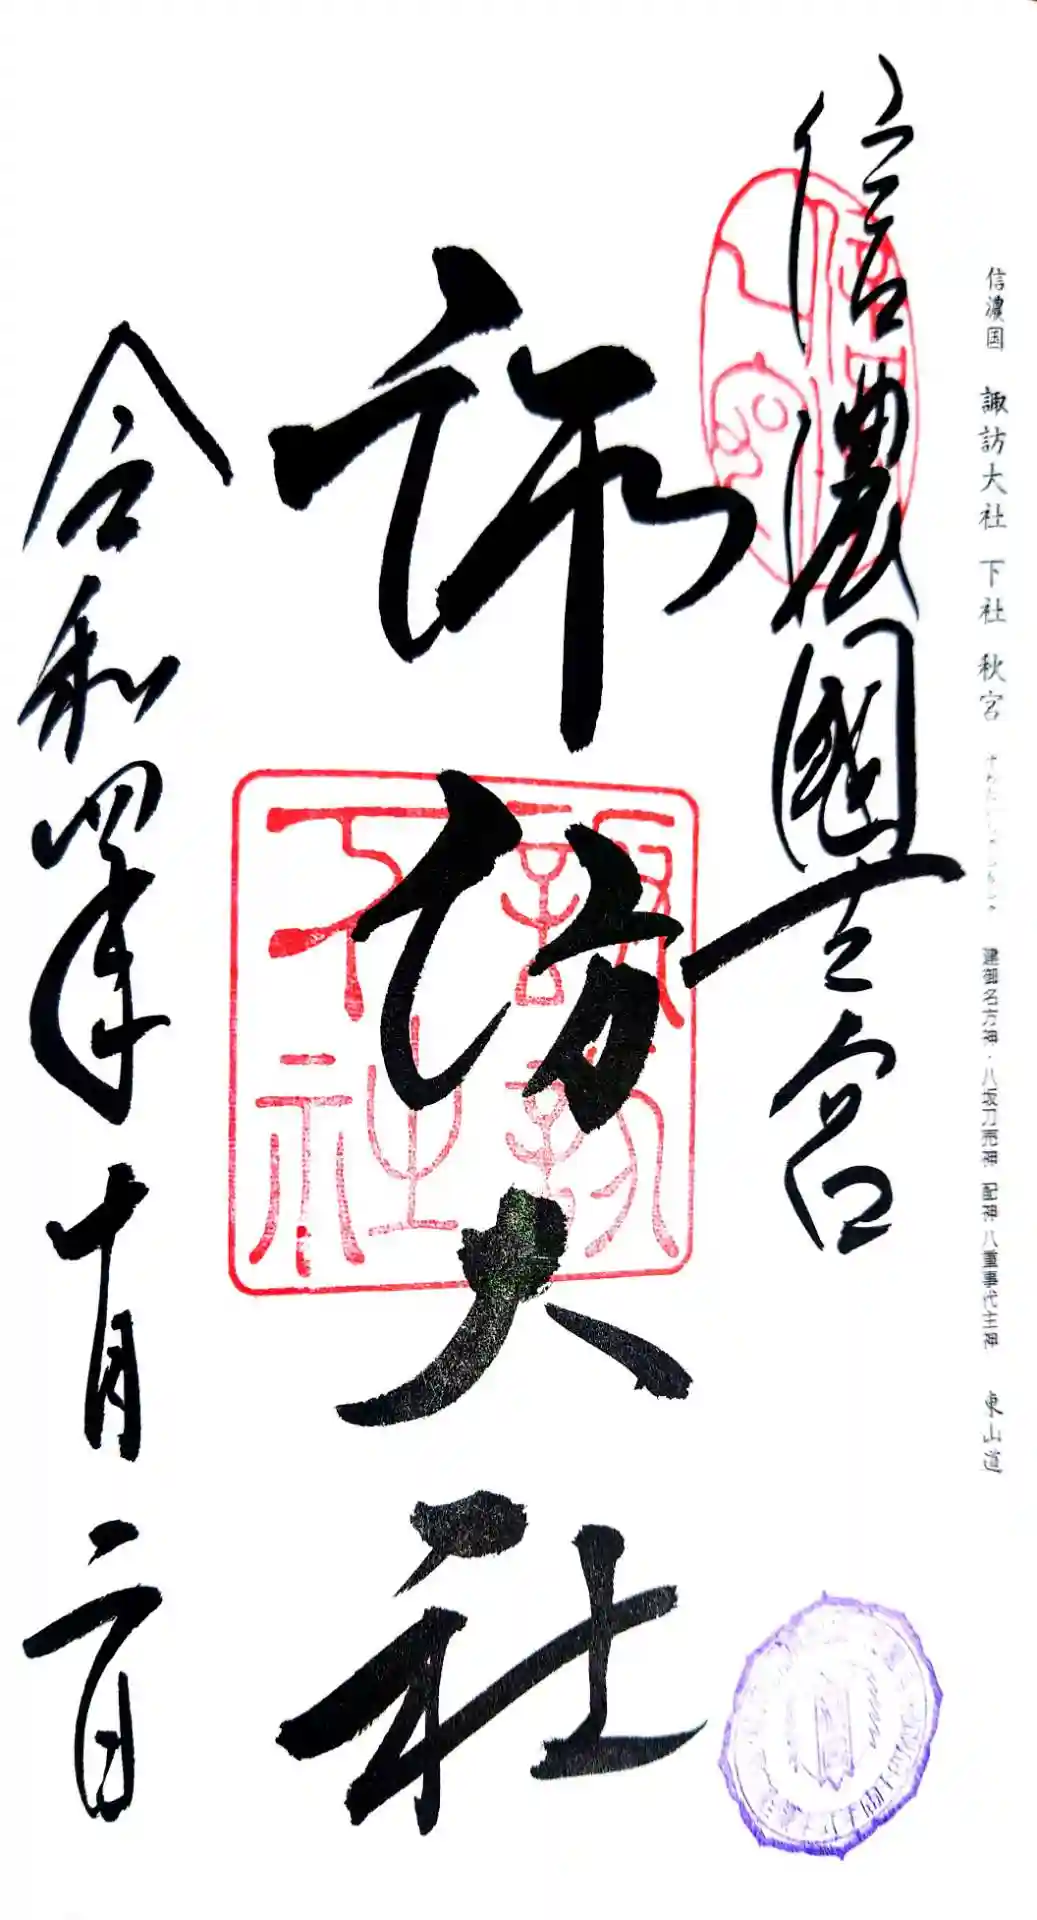 信濃国 諏訪大社 下社 秋宮 建御名方神・八坂刀売神 配神 八重事代主神 東山道
信濃國一之宮
諏訪大社
諏訪下社
令和四年十月二日